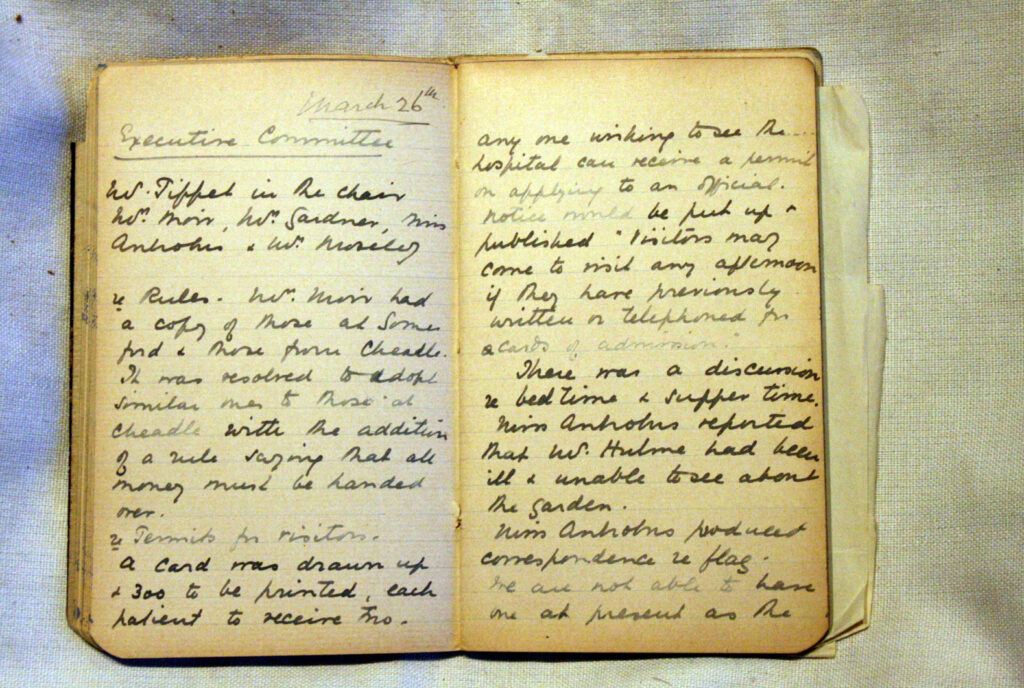 March 26th
Executive Committee
Mr. Tippet in the chair
Mrs. Moir, Mrs. Gardner, Miss
Antrobus & Mr. Moseley
re Rules. Mrs. Moir had
a copy of those at Somer
ford & those from Cheadle.
It was resolved to adopt
similar ones to those at
Cheadle with the addition
of a rule saying that all
money must be handed
over.
re Permits for visitors.
A card was drawn up
& 300 to be printed, each
patient to receive two.
any one wishing to see the
hospital can receive a permit
on applying to an official.
Notice would be put up &
published "Visitors may
come to visit any afternoon
if they have previously
written or telephoned for
cards of admission."
There was a discussion
re bedtime & supper time.
Miss Antrobus reported
that Mr. Hulme had been
ill & unable to see about
the garden.
Miss Antrobus produced
correspondence re flag.
We are not able to have
one at present as the